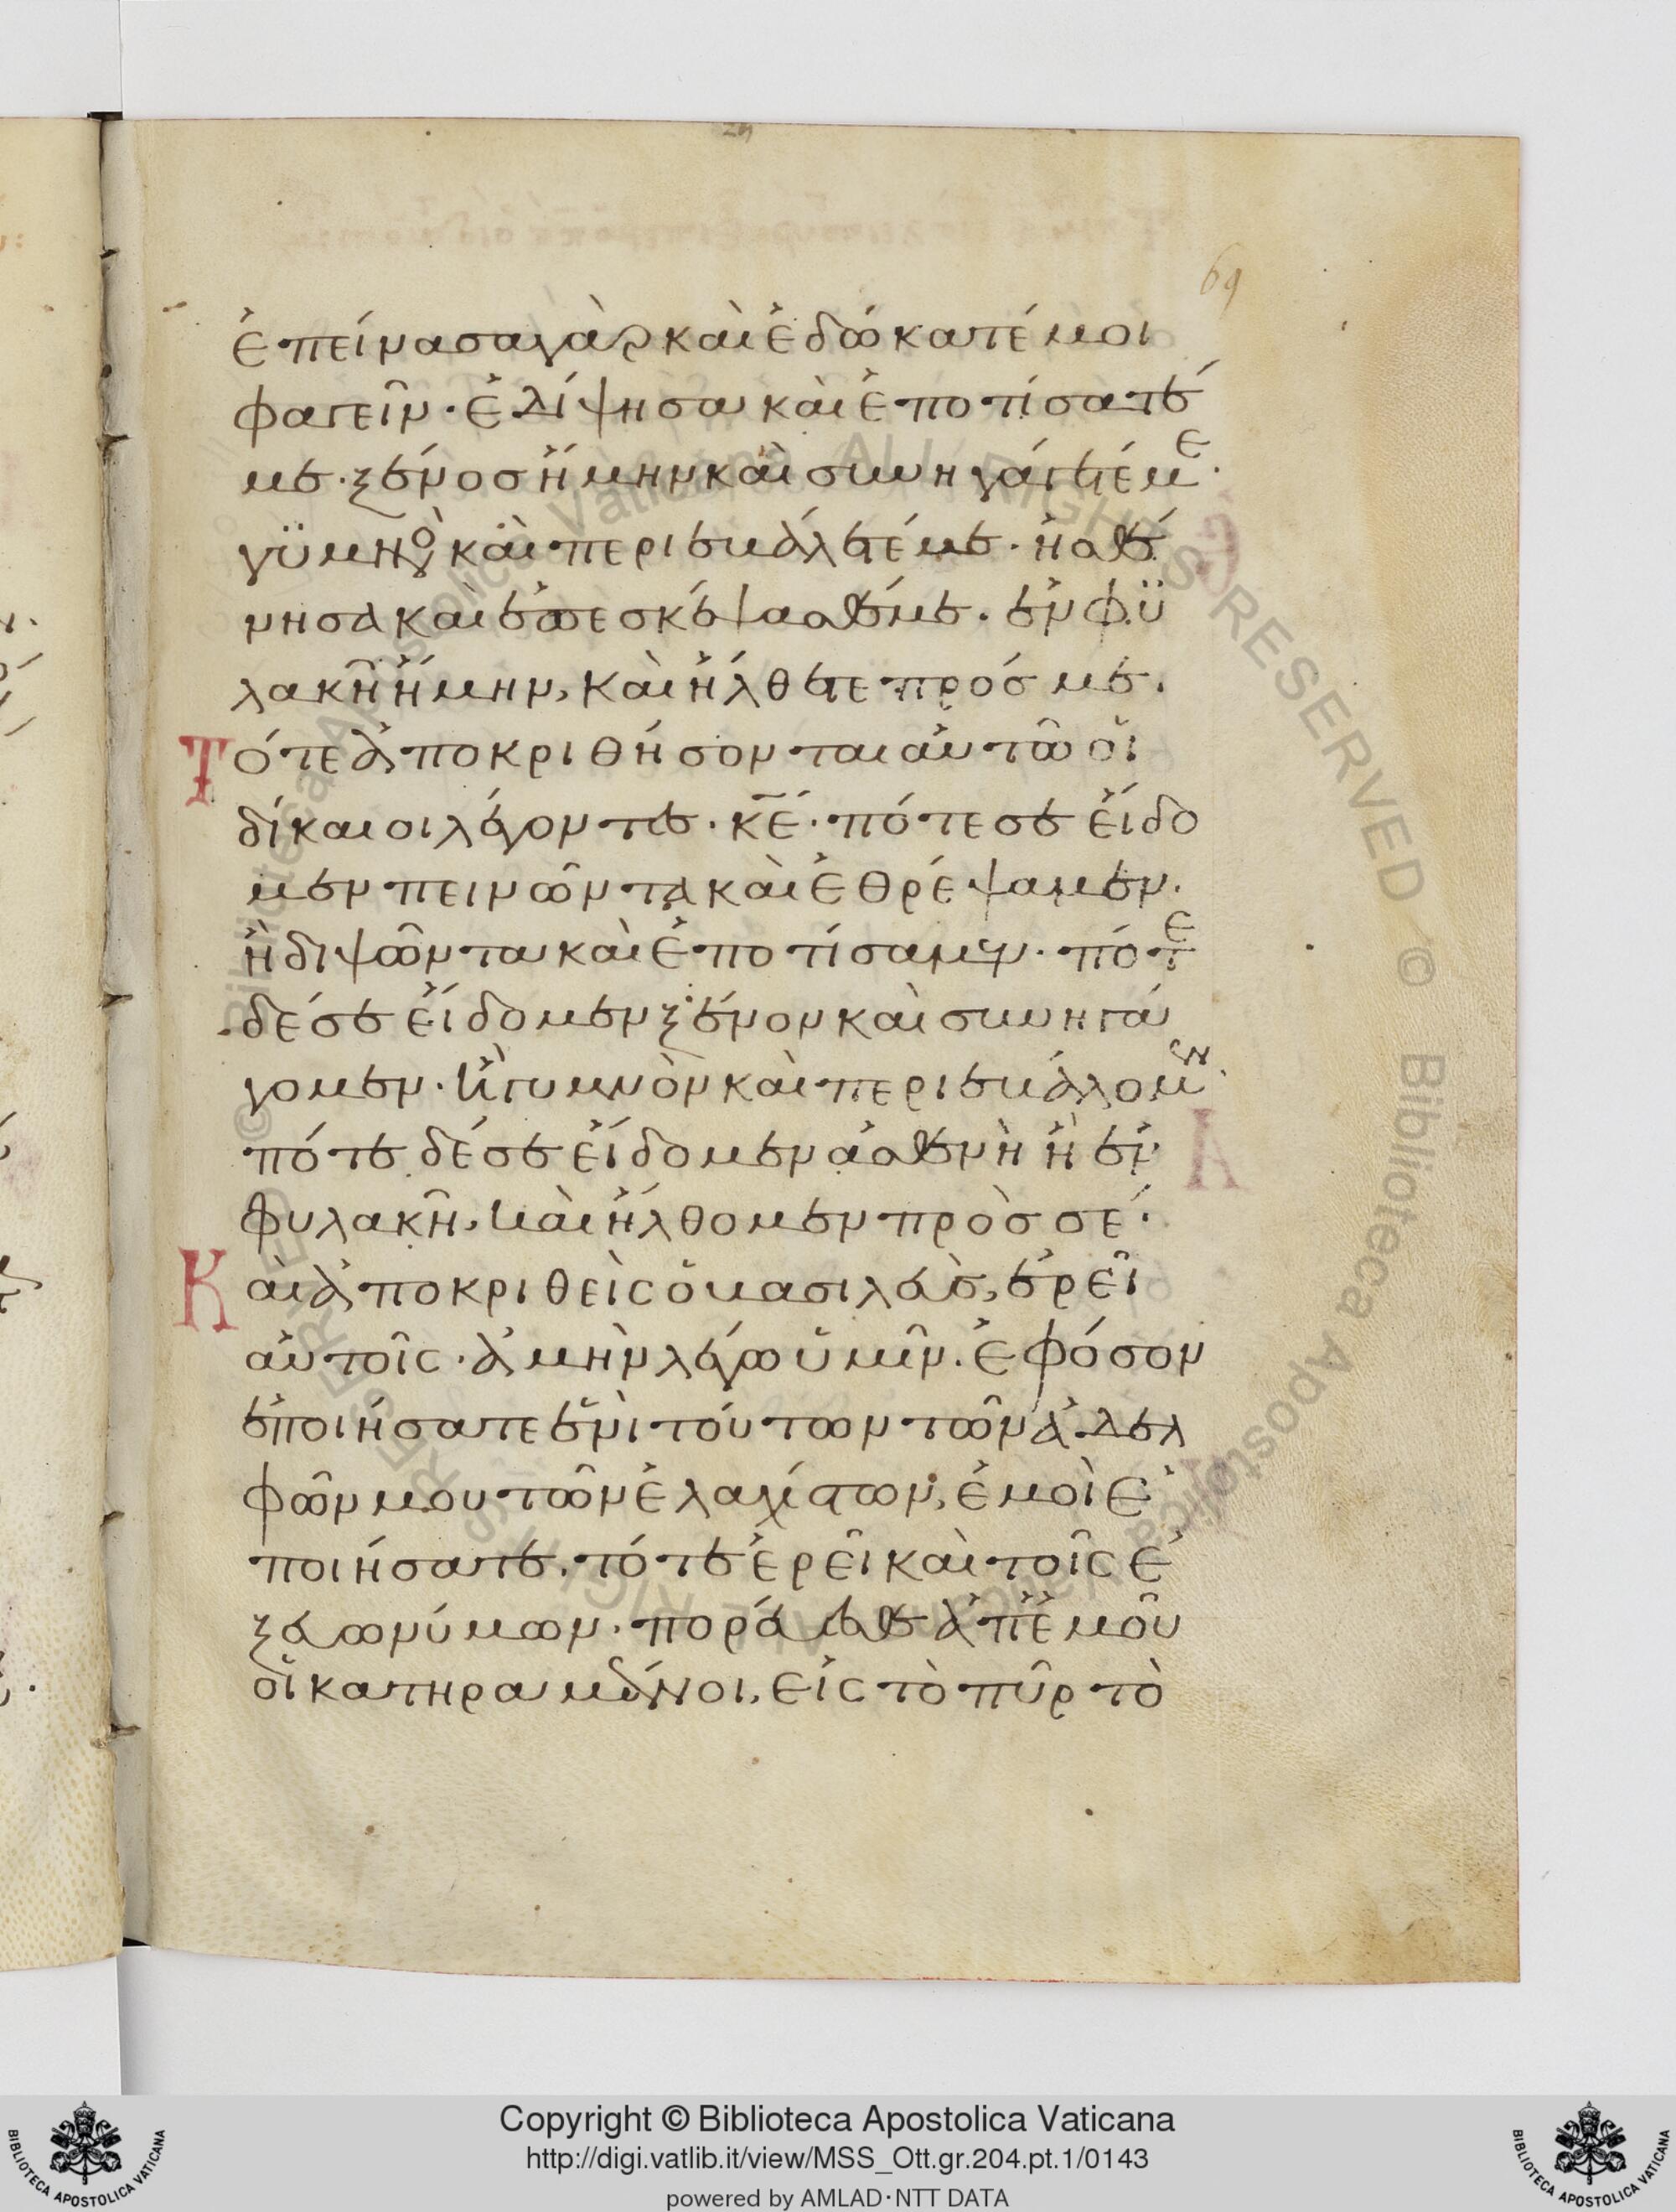 69
ἐπείνασα γὰρ καὶ ἐδώκατέ μοι
φαγεῖν· ἐδίψησα καὶ ἐποτίσατέ
με· ξένος ἤμην καὶ συνηγάγετέ με·
γϋμνὸς καὶ περιεβάλετέ με· ἠσθέ
νησα καὶ ἐπεσκέψασθέ με· ἐν φϋ
λακῆ ἤμην, καὶ ἤλθετε πρός με.
Τότε ἀποκριθήσονται αὐτῶ οἱ
δίκαιοι λέγοντες· κ̅ε̅· πότε σε εἴδο
μεν πεινῶντα καὶ ἐθρέψαμεν.
ἢ διψῶντα καὶ ἐποτίσαμεν· πότε
δέ σε εἴδομεν ξένον καὶ συνηγά
γομεν· ἢ γυμνὸν καὶ περιεβάλομεν·
πότε δέ σε εἴδομεν ἀσθενῆ ἢ ἐν
φυλακῆ, καὶ ἤλθομεν πρὸς σέ·
Καὶ ἀποκριθεὶς ὁ βασιλεὺς, ἐρεῖ
αὐτοῖς· ἀμὴν λέγω ὑμῖν· ἐφόσον
ἐποιήσατε ἑνὶ τούτων τῶν ἀδελ
φῶν μου τῶν ἐλαχίστων, ἐμοὶ ἐ
ποιήσατε. τότε ἐρεῖ καὶ τοῖς ἐ
ξευωνύμων· πορεύεσθε ἀπ' ἐμοῦ
οἱ κατηραμένοι, εἰς τὸ πῦρ τὸ
© Biblioteca Apostolica Vaticana ALL RIGHTS RESERVED
Copyright © Biblioteca Apostolica Vaticana
http://digi.vatlib.it/view/MSS_Ott.gr.204.pt.1/0143
powered by AMLAD·NTT DATA
BIBLIOTECA APOSTOLICA VATICANA
BIBLIOTECA APOSTOLICA VATICANA